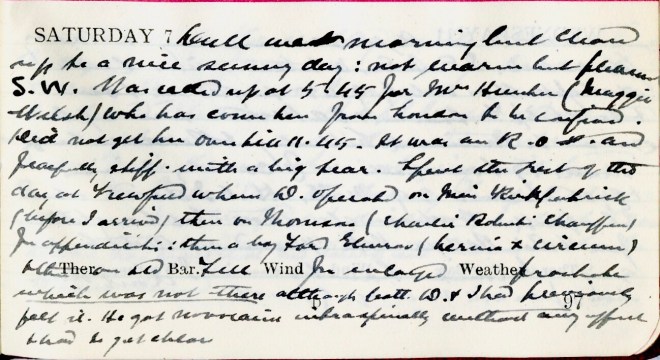 SATURDAY 7 Dull wet morning but cleared
up to be a nice sunny day: not warm but pleasant
S.W. Was called up at 5.45 for Mrs Hunter (Maggie
Welsh) who has come here from London to be confined.
Did not get her over till 11.45. It was an R.O.P. and
fearfully stiff. with a big tear. Spent the rest of the
day at where W. operated on Miss Kirkpatrick
(before I arrived) then on Thomson (Charlie Chauffeur)
for appendicitis: then a boy Ford (hernia & circum)
Ther. Bar. Wind for enlarged Weather prostate
which was not there although both W. & I had previously
felt it. He got novocaine intraspinally without any effect
& had to get chlor
97